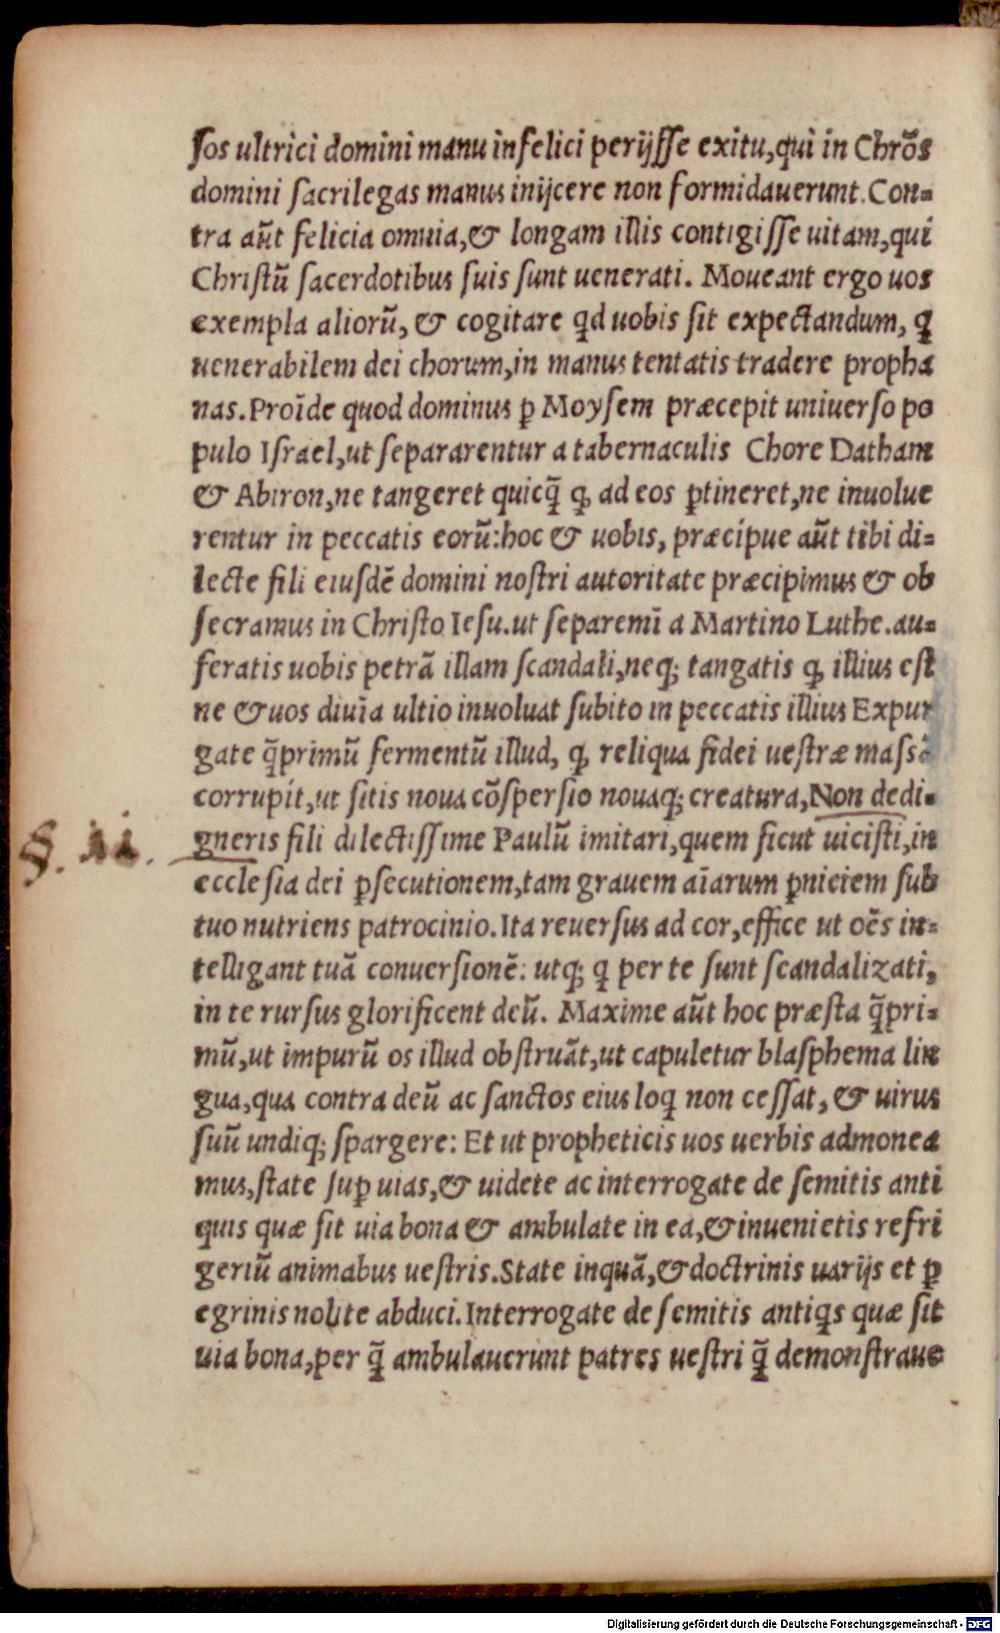 ſos ultrici domini manu infelici perijſſe exitu,qui in Chrõs
domini ſacrilegas manus inijcere non formidauerunt.Con=
tra aũt felicia omnia,& longam illis contigiſſe uitam,qui
Chriſtũ ſacerdotibus ſuis ſunt uenerati. Moueant ergo uos
exempla aliorũ, & cogitare qd uobis ſit expectandum, ꝗ
uenerabilem dei chorum,in manus tentatis tradere propha
nas.Proĩde quod dominus ꝑ Moyſem præcepit uniuerſo po
pulo Iſrael,ut ſepararentur a tabernaculis Chore Datham
& Abiron,ne tangeret quicꝗ̃ ꝙ ad eos ꝑtineret,ne inuolue
rentur in peccatis eorũ:hoc & uobis, præcipue aũt tibi di=
lecte fili eiuſdẽ domini noſtri autoritate præcipimus & ob
ſecramus in Chriſto Ieſu.ut ſeparemĩ a Martino Luthe.au=
feratis uobis petrã illam ſcandali,neq; tangatis ꝙ illius eſt
ne & uos diuĩa ultio inuoluat ſubito in peccatis illius Expur
gate ꝗ̃primũ fermentũ illud, ꝙ reliqua fidei ueſtræ maſsã
corrupit,ut ſitis noua cõſperſio nouaq; creatura,Non dedi=
§. ii. gneris fili dilectiſſime Paulũ imitari,quem ſicut uiciſti,in
eccleſia dei ꝑſecutionem,tam grauem aĩarum ꝑniciem ſub
tuo nutriens patrocinio.Ita reuerſus ad cor,effice ut oẽs in=
telligant tuã conuerſionẽ: utq; ꝗ per te ſunt ſcandalizati,
in te rurſus glorificent deũ. Maxime aũt hoc præſta ꝗ̃pri=
mũ,ut impurũ os illud obſtruãt,ut capuletur blaſphema lin
gua,qua contra deũ ac ſanctos eius loꝗ non ceſſat, & uirus
ſuũ undiq; ſpargere: Et ut propheticis uos uerbis admonea
mus,ſtate ſuꝑ uias,& uidete ac interrogate de ſemitis anti
quis quæ ſit uia bona & ambulate in ea,& inuenietis refri
geriũ animabus ueſtris.State inquã,& doctrinis uarijs et ꝑ
egrinis nolite abduci.Interrogate de ſemitis antiꝗs quæ ſit
uia bona,per ꝗ̃ ambulauerunt patres ueſtri ꝗ̃ demonſtraue
Digitalisierung gefördert durch die Deutsche Forschungsgemeinschaft - DFG